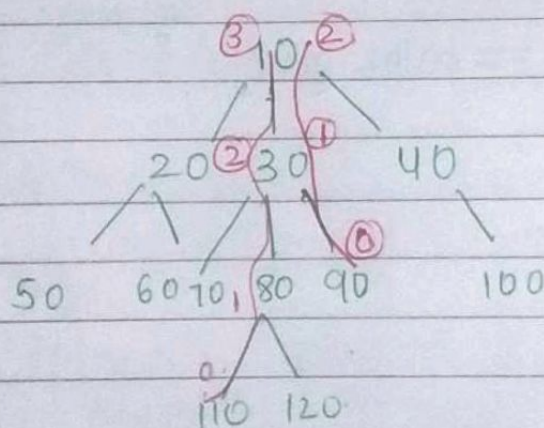 ③ 10 ②
20 ② 30 ① 40
⓪
50 60 70 1 80 90 100
0
110 120